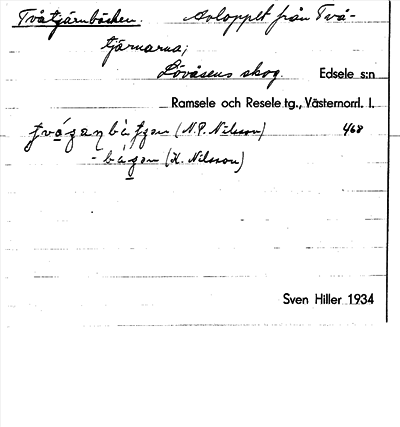 Tvåtjärnbäcken. Avloppet från Två-
tjärnarna;
Lövåsens skog. Edsele s:n
Ramsele och Resele tg., Västernorrl. l.
(N.P. Nilsson) 468
(K. Nilsson)
Sven Hiller 1934